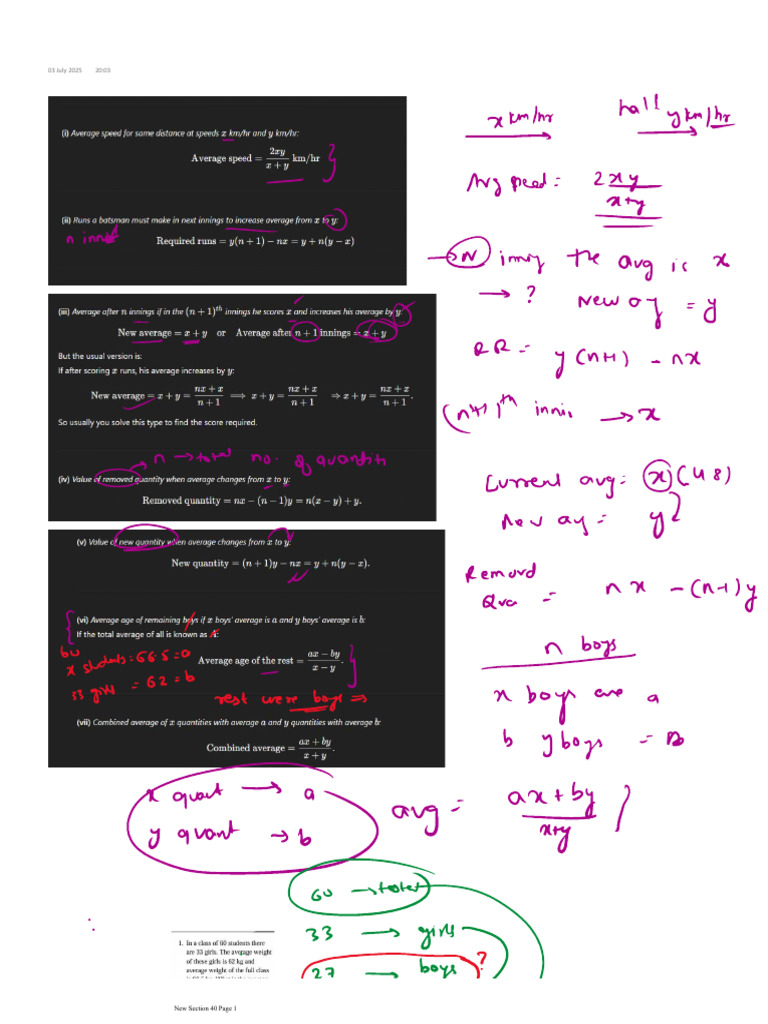 03 July 2025 20:03
(i) Average speed for same distance at speeds x km/hr and y km/hr:
Average speed = 2xy / x + y km/hr
(ii) Runs a batsman must make in next innings to increase average from x to y:
n
Required runs = y(n + 1) − nx = y + n(y − x)
(iii) Average after n innings if in the (n + 1)th innings he scores x and increases his average by y:
New average = x + y or Average after n + 1 innings = x + y
But the usual version is:
If after scoring x runs, his average increases by y:
New average = x + y = nx + x / n + 1 ⟹ x + y = nx + x / n + 1 ⇒ x + y = nx + x / n + 1.
So usually you solve this type to find the score required.
n → total no. of quantiti
(iv) Value of removed quantity when average changes from x to y:
Removed quantity = nx − (n − 1)y = n(x − y) + y.
(v) Value of new quantity when average changes from x to y:
New quantity = (n + 1)y − nx = y + n(y − x).
(vi) Average age of remaining boys if x boys' average is a and y boys' average is b:
If the total average of all is known as A:
60
x students = 66.5 = a
Average age of the rest = ax − by / x − y.
33 girls = 62 = b
rest were boys ⇒
(vii) Combined average of x quantities with average a and y quantities with average b:
Combined average = ax + by / x + y.
x km/hr
half y km/hr
Avg speed = 2xy / x+y
→ N inning the avg is x
→ ? New avg = y
RR = y(n+1) − nx
(n+1)th innis → x
Current avg = x (48)
New av = y
Removd
Qua = nx − (n−1)y
n boys
x boys are a
b y boys = b
x quant → a
y quant → b
avg = ax + by / x+y
60 → total
33 → girls
27 → boys ?
1. In a class of 60 students there
are 33 girls. The average weight
of these girls is 62 kg and
average weight of the full class
New Section 40 Page 1